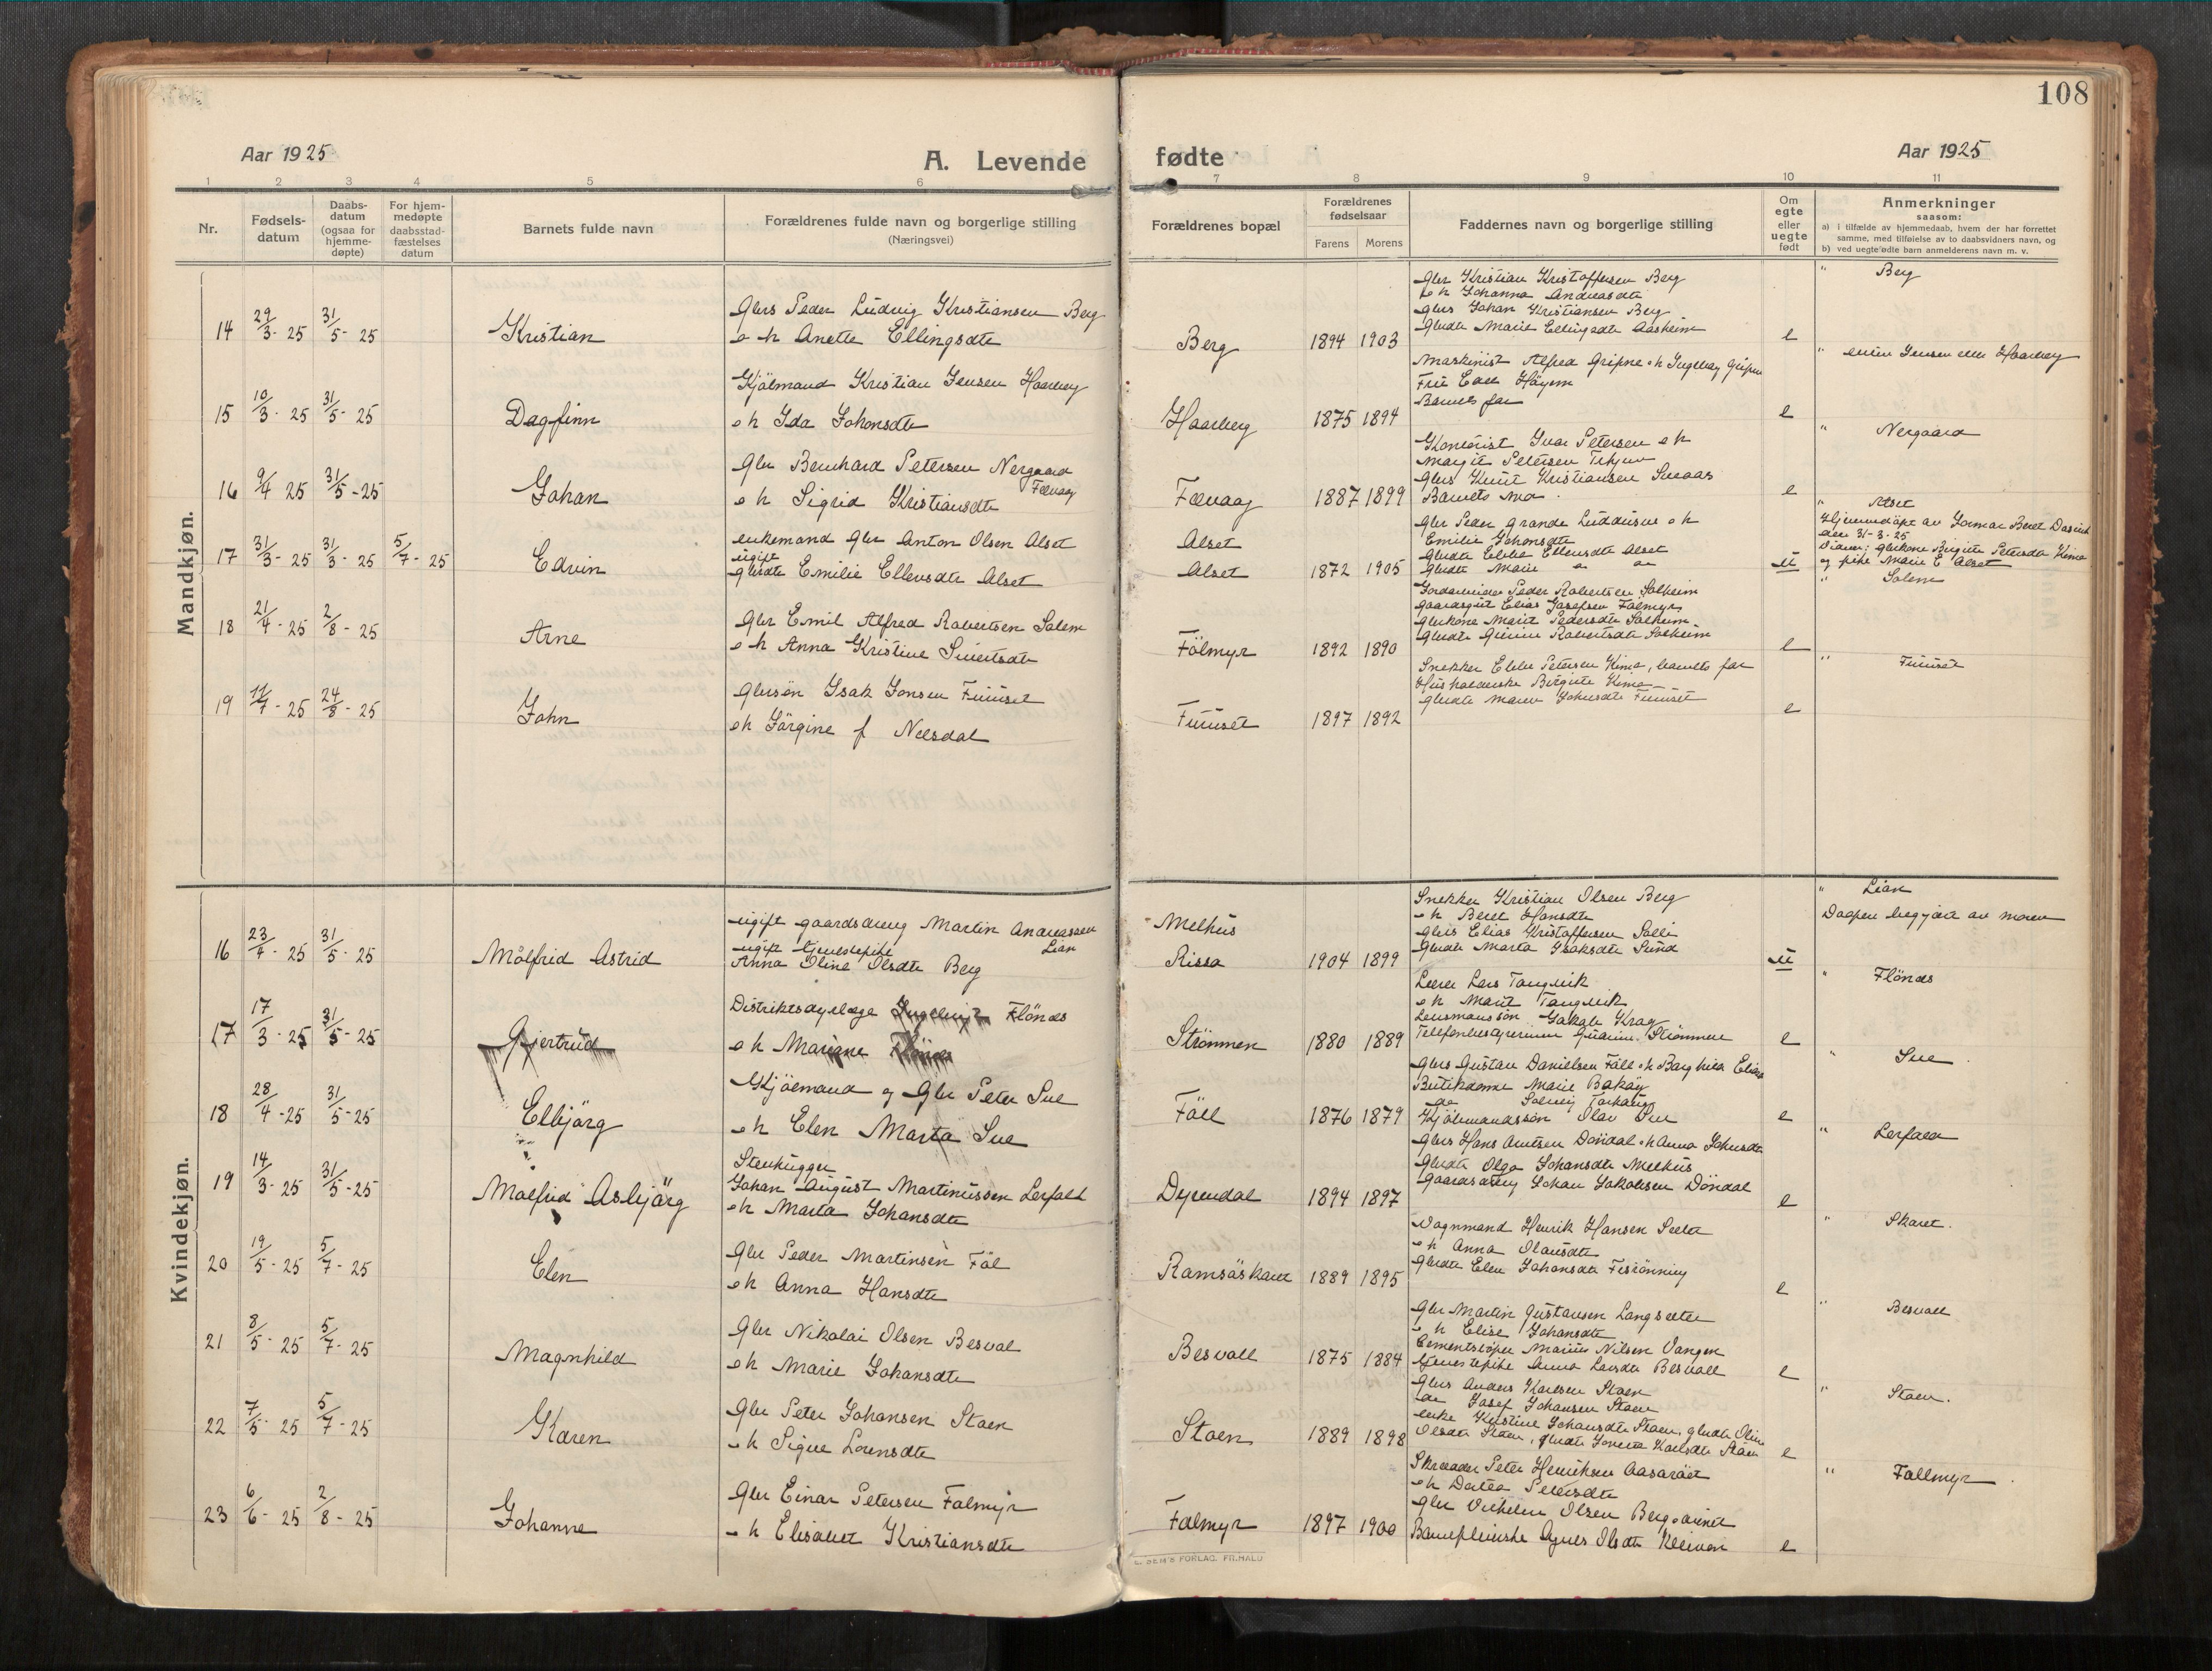 108
Aar 1925
A. Levende fødte
Aar 1925
1 2 3 4 5 6 7 8 9 10 11
Nr.
Fødsels-
datum
Daabs-
datum
(ogsaa for
hjemme-
døpte)
For hjem-
medøpte
daabsstad-
fæstelses
datum
Barnets fulde navn
Forældrenes fulde navn og borgerlige stilling
(Næringsvei)
Forældrenes bopæl
Forældrenes
fødselsaar
Farens Morens
Faddernes navn og borgerlige stilling
Om
egte
eller
uegte
født
Anmerkninger
saasom:
a) i tilfælde av hjemmedaab, hvem der har forrettet
samme, med tilføielse av to daabsvidners navn, og
b) ved uegte fødte barn anmelderens navn m. v.
Mandkjøn.
14 29/3 - 25 31/5 - 25 Kristian
Gbrs Peder Ludvig Kristiansen Berg
o h Anette Ellingsdtr
Berg 1894 1903
Gbr Kristian Kristoffersen Berg
o h Johanna Andreasdtr
Gbrs Johan Kristiansen Berg
Gbrdtr Marie Ellingsdtr Aasheim
e
" Berg
15 10/3 - 25 31/5 - 25 Dagfinn
Kjölmand Kristian Jensen Haarberg
o h Ida Johansdtr
Haarberg 1875 1894
Maskinist Alfred Gripne o h Ingeborg Gripne
Barnets far
e
" enten Jensen eller Haarberg
16 9/4 25 31/5 - 25 Johan
Gbr Bernhard Petersen Nergaard
Fævaag
o h Sigrid Kristiansdtr
Fævaag 1887 1899
Kontorist Ivar Petersen o h
Margit Petersen
Gbrs Knut Kristiansen
Barnets mor.
e
" Nergaard
17 31/3 - 25 31/3 - 25 5/7 - 25 Edvin
enkemand Gbr Anton Olsen Alset
ugift
gbrdtr Emilie Ellevsdtr Alset
Alset
Alset 1872 1905
Gbr Peder Grande o h
Emilie Johansdtr
Gbrdtr Ellevsdtr Alset
Gbrdtr Marie do do
u
" Alset
Hjemmedøpt av Jormor Beret
den 31-3-25
Vidner: gbrkone Birgitte Petersdtr Kimo
og pike Marie E Alset
18 21/4 - 25 2/8 - 25 Arne
Gbr Emil Alfred Robertsen Solem
o h Anna Kristine Sivertsdtr
Fölmyr 1892 1890
Jordarbeider Peder Robertsen Solheim
gaardsgut Elias Josefsen Fölmyr
Gbrkone Marit Pedersdtr Solheim
Gbrdtr Robertsdtr Solheim
e
" Solem
19 11/7 - 25 24/8 - 25 John
Gbrsøn Isak Jonsen Fuuset
o h Jörgine f Neesdal
Fuuset 1897 1892
Snekker Petersen Kimo, barnets far
Husholderske Birgitte Kimo
Gbrdtr Maren Johnsdtr Fuuset
e
" Fuuset
Kvindekjøn.
16 23/4 - 25 31/5 - 25 Målfrid Astrid
ugift gaardsdreng Martin Andreassen
Lian
ugift tjenestepike
Anna Oline Olsdtr Berg
Melhus
Rissa 1904 1899
Snekker Kristian Olsen Berg
o h Beret Hansdtr
Gbrs Elias Kristoffersen Solli
Gbrdtr Marta Isaksdtr Sund
u
" Lian
Daapen begjært av moren
17 17/3 - 25 31/5 - 25 Gjertrud
Distriktsdyrlæge Flönæs
o h Mariane
Strömmen 1880 1889
Lærer Lars Tangvik
o h Marit Tangvik
Lensmanssön Jakob Krag
Telefonbestyrerinde Strömmen
e
" Flönæs
18 28/4 - 25 31/5 - 25 Elbjörg
Kjölmand og Gbr Peter Sve
o h Elen Marta Sve
Föll 1876 1879
Gbrs Gustav Danielsen Föll o h Borghild
Butikdame Marie Baköy
do Solveig
Kjölmandssön Olav Sve
e
" Sve
19 14/3 - 25 31/5 - 25 Målfrid Asbjörg
Stenhugger
Johan August Martinussen Lerfald
o h Marta Johansdtr
Dyrendal 1894 1897
Gbrs Hans Arntsen Döndal o h Anna Johnsdtr
Gbrdtr Olga Johansdtr Melhus
Gaardsdreng Johan Jakobsen Döndal
e
" Lerfald
20 19/5 - 25 5/7 - 25 Elen
Gbr Peder Martinsen Föl
o h Anna Hansdtr
Ramsöskaret 1889 1895
Vognmand Henrik Hansen
o h Anna Olausdtr
Gbrdtr Elen Johansdtr
e
" Skaret.
21 8/5 - 25 5/7 - 25 Magnhild
Gbr Nikolai Olsen Besvol
o h Marie Johansdtr
Besvoll 1875 1884
Gbr Martin Gustavsen Langsæter
o h Elise Johansdtr
Cementstöper Marius Nilsen Vangen
Tjenestepike Anna Larsdtr Besvoll
e
" Besvoll
22 7/5 - 25 5/7 - 25 Karen
Gbr Peter Johansen Støen
o h Signe Lorensdtr
Støen 1889 1898
Gbrs Anders Karlsen Støen
do Josef Johansen Støen
enke Kristine Johansdtr Støen, gbrdtr Oline
Olsdtr Støen, gbrdtr Karlsdtr Støen
e
" Støen.
23 6/6 - 25 2/8 - 25 Johanne
Gbr Einar Petersen Folmyr
o h Elisabet Kristiansdtr
Folmyr 1897 1900
Skrædder Peter Henriksen Aasaröet
o h Dortea Petersdtr
Gbr Vilhelm Olsen
Barnepleierske Agnes Olsdtr Kleivan
e
" Follmyr
SEM'S FORLAG. FR.HALD